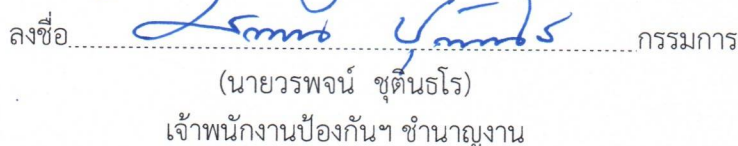 ลงชื่อ........................................................กรรมการ
(นายวรพจน์ ชุตินธโร)
เจ้าพนักงานป้องกันฯ ชำนาญงาน